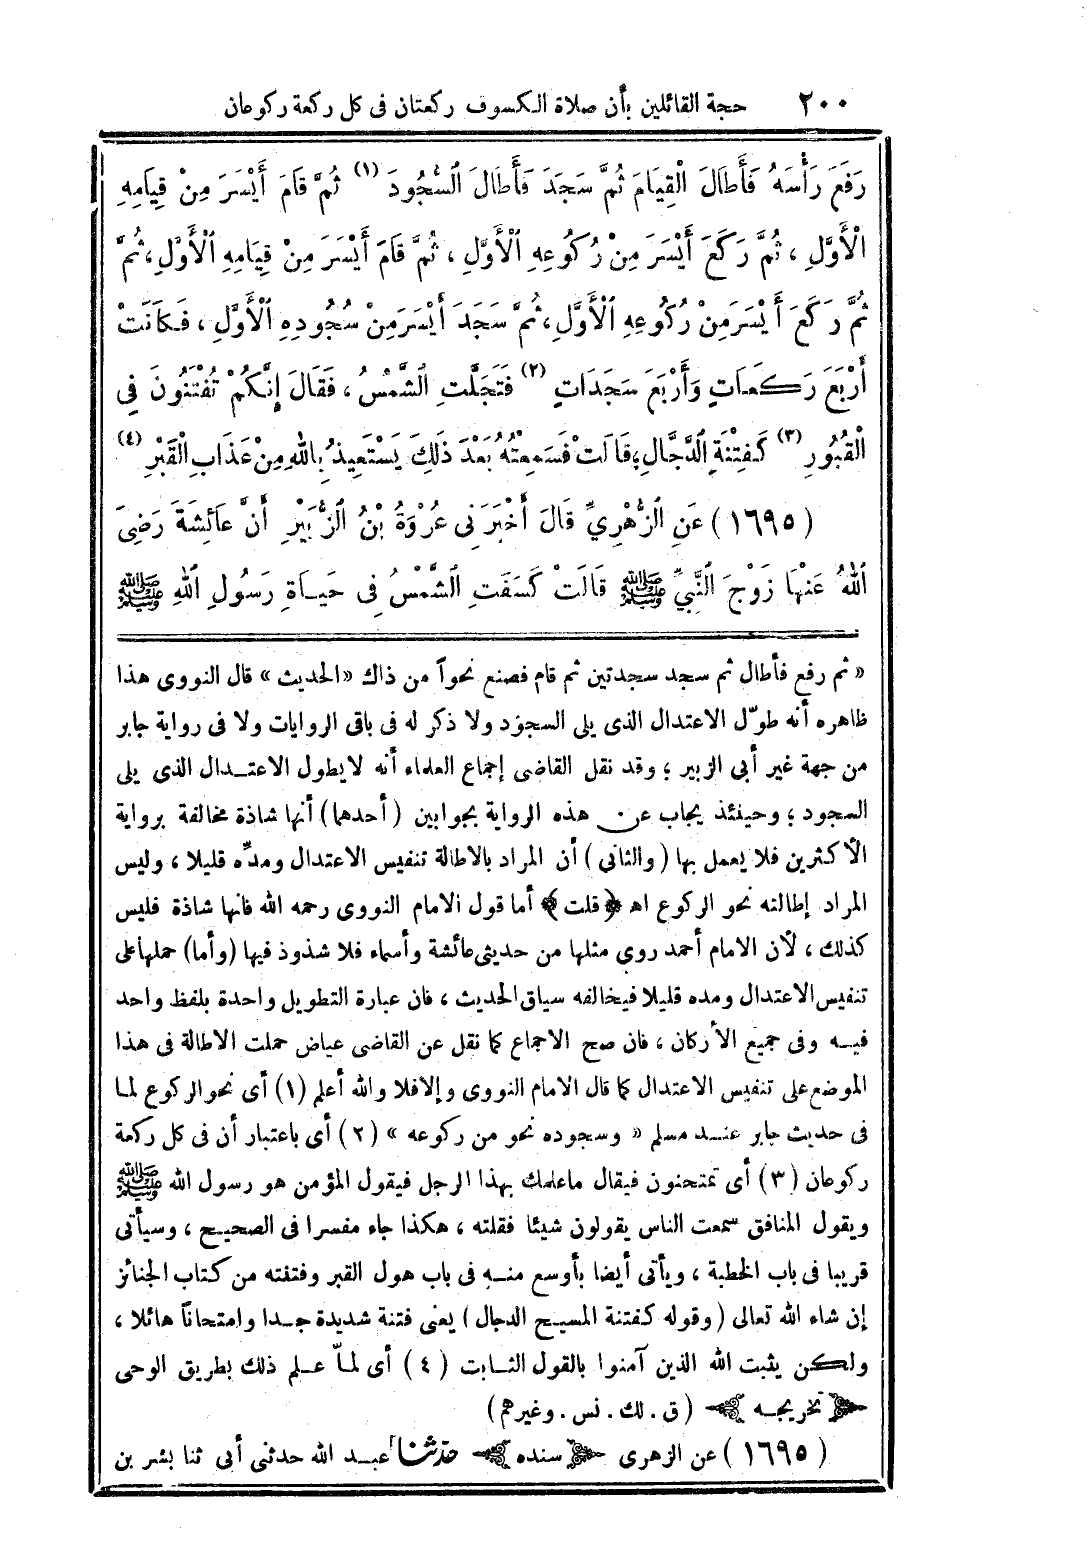 ٢٠٠ حجة القائلين بأن صلاة الكسوف ركعتان فى كل ركعة ركوعان
رَفَعَ رَأْسَهُ فَأَطَالَ الْقِيَامَ ثُمَّ سَجَدَ فَأَطَالَ السُّجُودَ (١) ثُمَّ قَامَ أَيْسَرَ مِنْ قِيَامِهِ
الْأَوَّلِ ، ثُمَّ رَكَعَ أَيْسَرَ مِنْ رُكُوعِهِ الْأَوَّلِ ، ثُمَّ قَامَ أَيْسَرَ مِنْ قِيَامِهِ الْأَوَّلِ، ثُمَّ
ثُمَّ رَكَعَ أَيْسَرَ مِنْ رُكُوعِهِ الْأَوَّلِ، ثُمَّ سَجَدَ أَيْسَرَ مِنْ سُجُودِهِ الْأَوَّلِ ، فَكَانَتْ
أَرْبَعَ رَكَعَاتٍ وَأَرْبَعَ سَجَدَاتٍ (٢) فَتَجَلَّتِ الشَّمْسُ ، فَقَالَ إِنَّكُمْ تُفْتَنُونَ فِى
الْقُبُورِ (٣) كَفِتْنَةِ الدَّجَّالِ، قَالَتْ فَسَمِعْتُهُ بَعْدَ ذَلِكَ يَسْتَعِيذُ بِاللهِ مِنْ عَذَابِ الْقَبْرِ (٤)
(١٦٩٥) عَنِ الزُّهْرِيِّ قَالَ أَخْبَرَنِى عُرْوَةُ بْنُ الزُّبَيْرِ أَنَّ عَائِشَةَ رَضِىَ
اللهُ عَنْهَا زَوْجَ النَّبِيِّ ﷺ قَالَتْ كَسَفَتِ الشَّمْسُ فِى حَيَاةِ رَسُولِ اللهِ ﷺ
« ثم رفع فأطال ثم سجد سجدتين ثم قام فصنع نحواً من ذاك «الحديث» قال النووى هذا
ظاهره أنه طوّل الاعتدال الذى يلى السجود ولا ذكر له فى باقى الروايات ولا فى رواية جابر
من جهة غير أبى الزبير ؛ وقد نقل القاضى إجماع العلماء أنه لا يطول الاعتـدال الذى يلى
السجود ؛ وحينئذ يجاب عن هذه الرواية بجوابين (أحدهما) أنها شاذة مخالفة برواية
الأكثرين فلا يعمل بها (والثانى) أن المراد بالاطالة تنفيس الاعتدال ومدّه قليلا ، وليس
المراد إطالته نحو الركوع اه ﴿قلت﴾ أما قول الامام النووى رحمه الله فانها شاذة فليس
كذلك ، لأن الامام أحمد روى مثلها من حديثى عائشة وأسماء فلا شذوذ فيها (وأما) حملها على
تنفيس الاعتدال ومده قليلا فيخالفه سياق الحديث ، فان عبارة التطويل واحدة بلفظ واحد
فيـه وفى جميع الأركان ، فان صح الاجماع كما نقل عن القاضى عياض حملت الاطالة فى هذا
الموضع على تنفيس الاعتدال كما قال الامام النووى وإلا فلا والله أعلم (١) أى نحو الركوع لما
فى حديث جابر عنـد مسلم « وسجوده نحو من ركوعه » (٢) أى باعتبار أن فى كل ركعة
ركوعان (٣) أى تمتحنون فيقال ما علمك بهذا الرجل فيقول المؤمن هو رسول الله ﷺ
ويقول المنافق سمعت الناس يقولون شيئا فقلته ، هكذا جاء مفسرا فى الصحيح ، وسيأتى
قريبا فى باب الخطبة ، ويأتى أيضا بأوسع منـه فى باب هول القبر وفتنته من كتاب الجنائز
إن شاء الله تعالى (وقوله كفتنة المسيح الدجال) يعنى فتنة شديدة جـدا وامتحاناً هائلا ،
ولكن يثبت الله الذين آمنوا بالقول الثابت (٤) أى لمّا عـلم ذلك بطريق الوحى
﴿تخريجـه﴾ (ق . لك . نس . وغيرهم)
(١٦٩٥) عن الزهرى ﴿سنده﴾ حدّثنا عبـد الله حدثنى أبى ثنا بشر بن